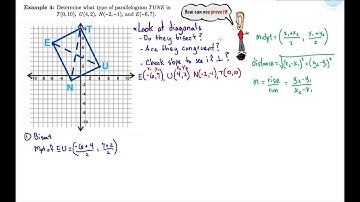 Example 4: Determine what type of parallelogram TUNE is
T(0,10), U(4,2), N(-2,-1), and E(-6,7).
How can you prove it?
* Look at diagonals
- Do they bisect?
- Are they congruent?
- Check slope to see if ⊥?
x₁ y₁ x₂ y₂
E(-6,7), U(4,2) N(-2,-1), T(0,10)
Mdpt = (x₁+x₂/2, y₁+y₂/2)
distance = √(x₂-x₁)²+(y₂-y₁)²
M = rise/run = y₂-y₁/x₂-x₁
T
E
U
N
① Bisect
Mpt of EU = (-6+4/2, 7+2/2)